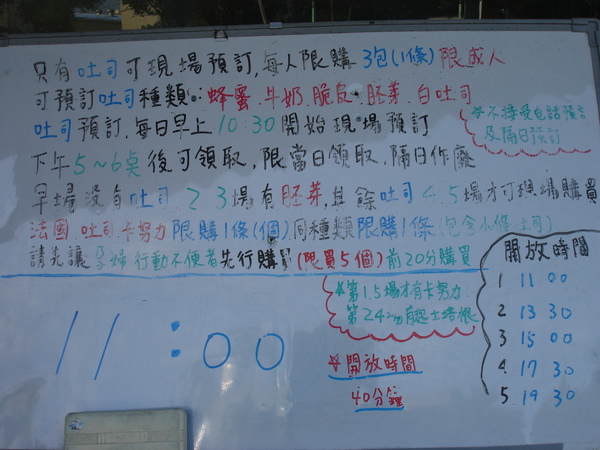 只有吐司可現場預訂,每人限購 3包(1條)限成人
可預訂吐司種類:蜂蜜.牛奶.脆皮.胚芽.白吐司
吐司預訂,每日早上10:30開始現場預訂
※不接受電話預訂
及隔日預訂
下午5~6點後可領取,限當日領取,隔日作廢
早場沒有吐司.2.3場有胚芽,其餘吐司4.5場才可現場購買
法國.吐司.卡努力限購1條(個)同種類限購1條(包含小條吐司)
請先讓孕婦行動不便者先行購買(限買5個)前20分購買
※第1.5場才有卡努力
第2.4場有起士培根
11:00
※開放時間
40分鐘
開放時間
1 11 00
2 13 30
3 15 00
4. 17 30
5. 19 30